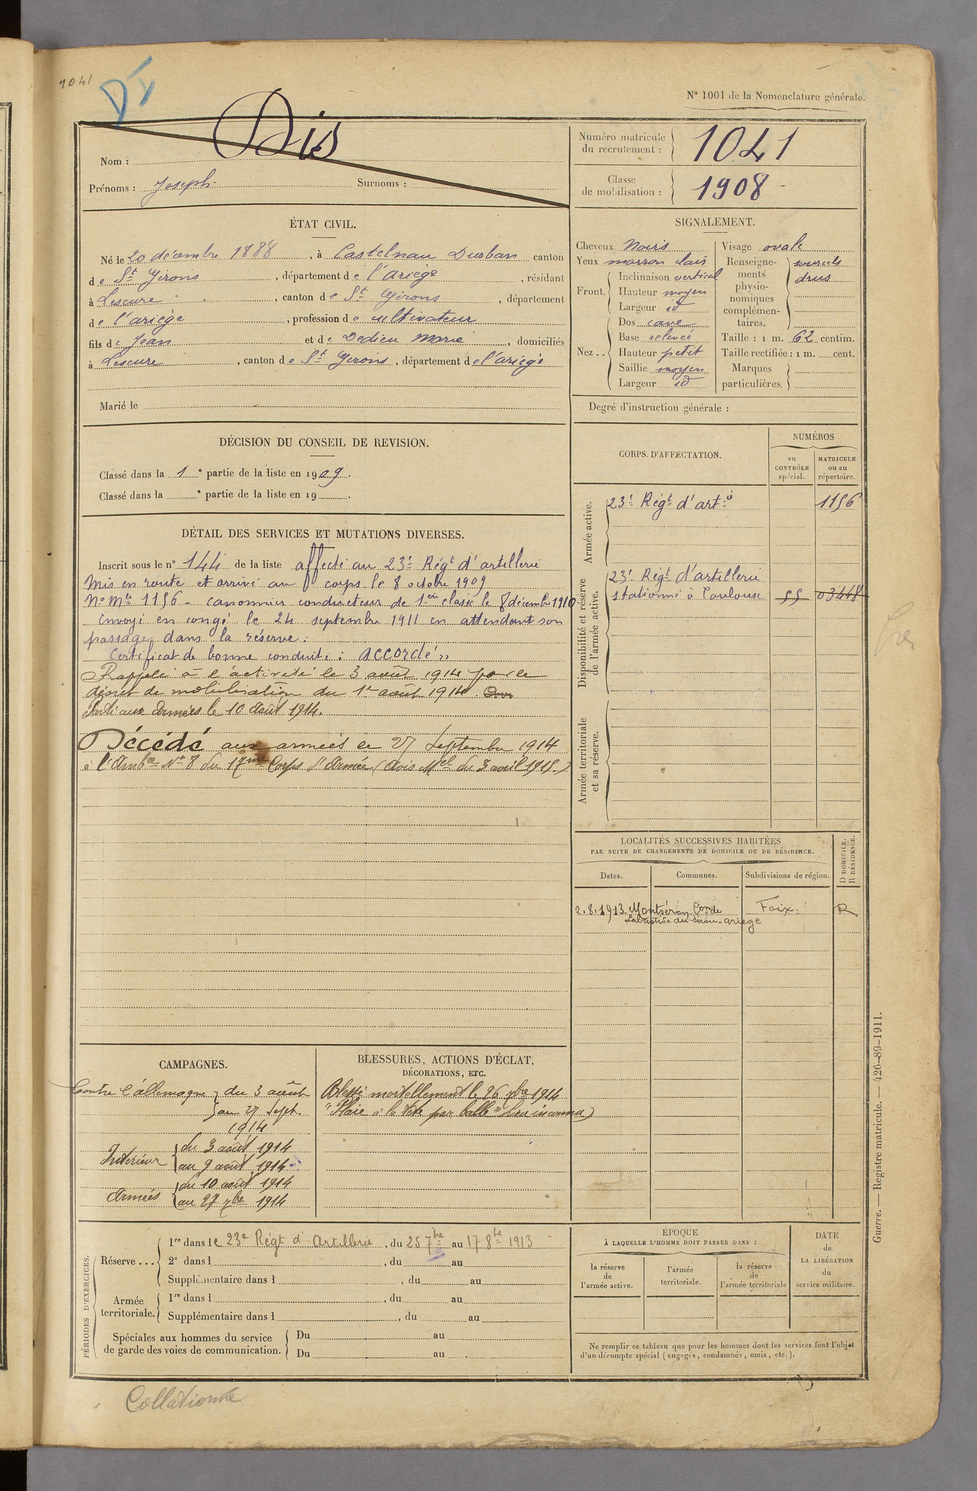 1041
DI
N° 1001 de la Nomenclature générale.
Nom : Dis
Prénoms : Joseph Surnoms :
Numéro matricule du recrutement : 1041
Classe de mobilisation : 1908
ÉTAT CIVIL.
Né le 20 décembre 1888, à Castelnau Durban canton
de St Girons, département de l'ariège, résidant
à Lescure, canton de St Girons, département
de l'ariège, profession de cultivateur
fils de Jean et de Dedieu Marie, domiciliés
à Lescure, canton de St Girons, département de l'ariège
Marié le
SIGNALEMENT.
Cheveux Noirs
Yeux marron clair
Front. Inclinaison vertical
Hauteur moyen
Largeur id
Nez . . Dos cave
Base relevée
Hauteur petit
Saillie moyen
Largeur id
Visage ovale
Renseignements physionomiques complémentaires. sourcils drus
Taille : 1 m. 62 centim.
Taille rectifiée : 1 m. cent.
Marques particulières.
Degré d'instruction générale :
DÉCISION DU CONSEIL DE REVISION.
Classé dans la 1e partie de la liste en 1909.
Classé dans la e partie de la liste en 19 .
CORPS D'AFFECTATION.
NUMÉROS
au CONTRÔLE spécial.
MATRICULE ou au répertoire.
Armée active.
23e Régt d'artie 1156
Disponibilité et réserve de l'armée active.
23e Régt d'artillerie
stationné à Toulouse SS 03468
Armée territoriale et sa réserve.
DÉTAIL DES SERVICES ET MUTATIONS DIVERSES.
Inscrit sous le n° 144 de la liste affecté au 23e Régt d'artillerie
Mis en route et arrivé au corps le 8 octobre 1909
No Mle 1156 - canonnier conducteur de 1ère classe le 8 décembre 1910
Envoyé en congé le 24 septembre 1911 en attendant son
passage dans la réserve.
Certificat de bonne conduite : accordé "
Rappelé à l'activité le 3 août 1914 par le
décret de mobilisation du 1er août 1914.
Parti aux armées le 10 août 1914.
Décédé aux armées le 27 septembre 1914
à l'Ambce No 8 du 17me Corps d'Armée (Avis Mel du 3 avril 1915)
LOCALITÉS SUCCESSIVES HABITÉES
PAR SUITE DE CHANGEMENTS DE DOMICILE OU DE RÉSIDENCE.
Dates. Communes. Subdivisions de région. D DOMICILE, R RÉSIDENCE.
2.8.1913 Montséron Foix. R
Labastide du Sérou ariège
CAMPAGNES.
Contre l'allemagne du 3 août
au 27 Sept.
1914
Intérieur du 3 août 1914
au 9 août 1914
Armées du 10 août 1914
au 27 7bre 1914
BLESSURES, ACTIONS D'ÉCLAT,
DÉCORATIONS, ETC.
Blessé mortellement le 26 7bre 1914
"Plaie à la tête par balle" (Lieu inconnu)
PÉRIODES D'EXERCICES.
Réserve . . . 1re dans le 23e Régt d'Artillerie, du 25 7bre au 17 8bre 1913
2e dans l , du au
Supplémentaire dans l , du au
Armée territoriale. 1re dans l , du au
Supplémentaire dans l , du au
Spéciales aux hommes du service de garde des voies de communication. Du au
Du au
ÉPOQUE
À LAQUELLE L'HOMME DOIT PASSER DANS :
la réserve de l'armée active.
l'armée territoriale.
la réserve de l'armée territoriale
DATE de LA LIBÉRATION du service militaire.
Ne remplir ce tableau que pour les hommes dont les services font l'objet
d'un décompte spécial (engagés, condamnés, omis, etc.).
Guerre. — Registre matricule. — 426-89-1911.
Collationné